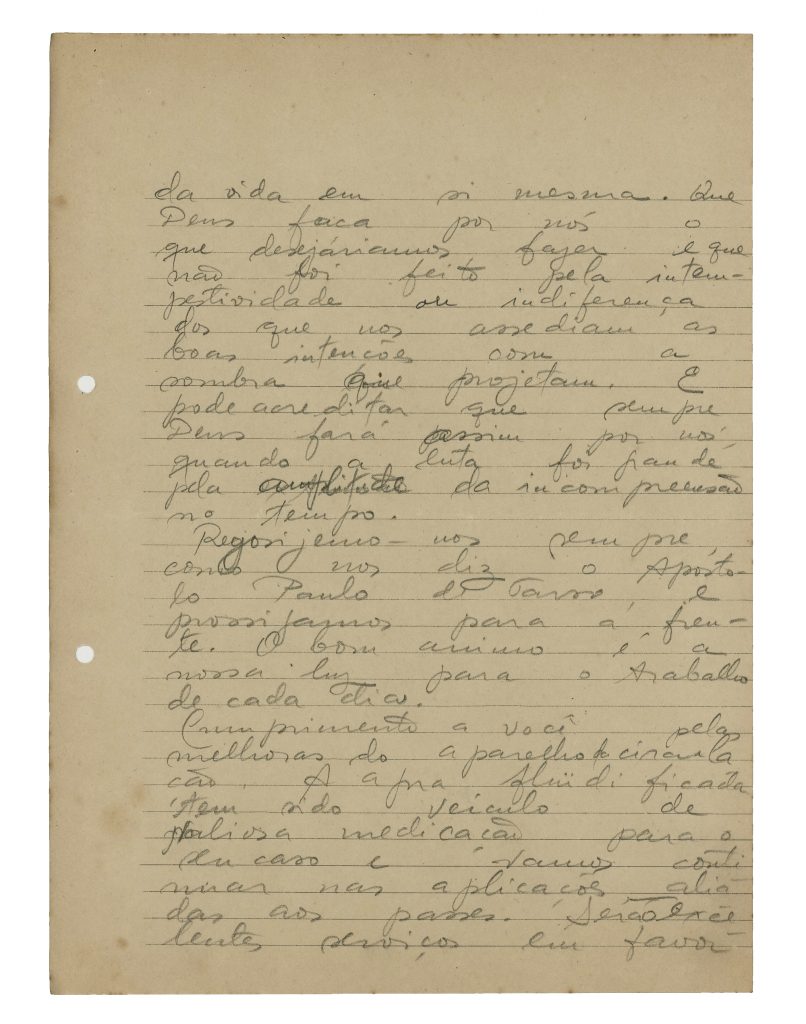 da vida em si mesma. Que
Deus faca por nós o
que desejáriamos fazer e que
não foi feito pela intem-
pestividade ou indiferença
dos que nos assediam as
boas intenções com a
sombra que projetam. E
pode acreditar que sempre
Deus fará assim por nós,
quando a luta foi grande
pela amplitude da incompreensão
no tempo.
Regosijemo-nos sempre,
como nos diz o Aposto-
lo Paulo de Tarso, e
prossigamos para a fren-
te. O bom animo é a
nossa luz para o trabalho
de cada dia.
Cumprimento a você pelas
melhoras do aparelho circula
cão. A agua fluidificada
tem sido veiculo de
valiosa medicacão para o
seu caso e vamos conti
nuar nas aplicações aliá
das aos passes. Serão exce
lentes serviços em favor